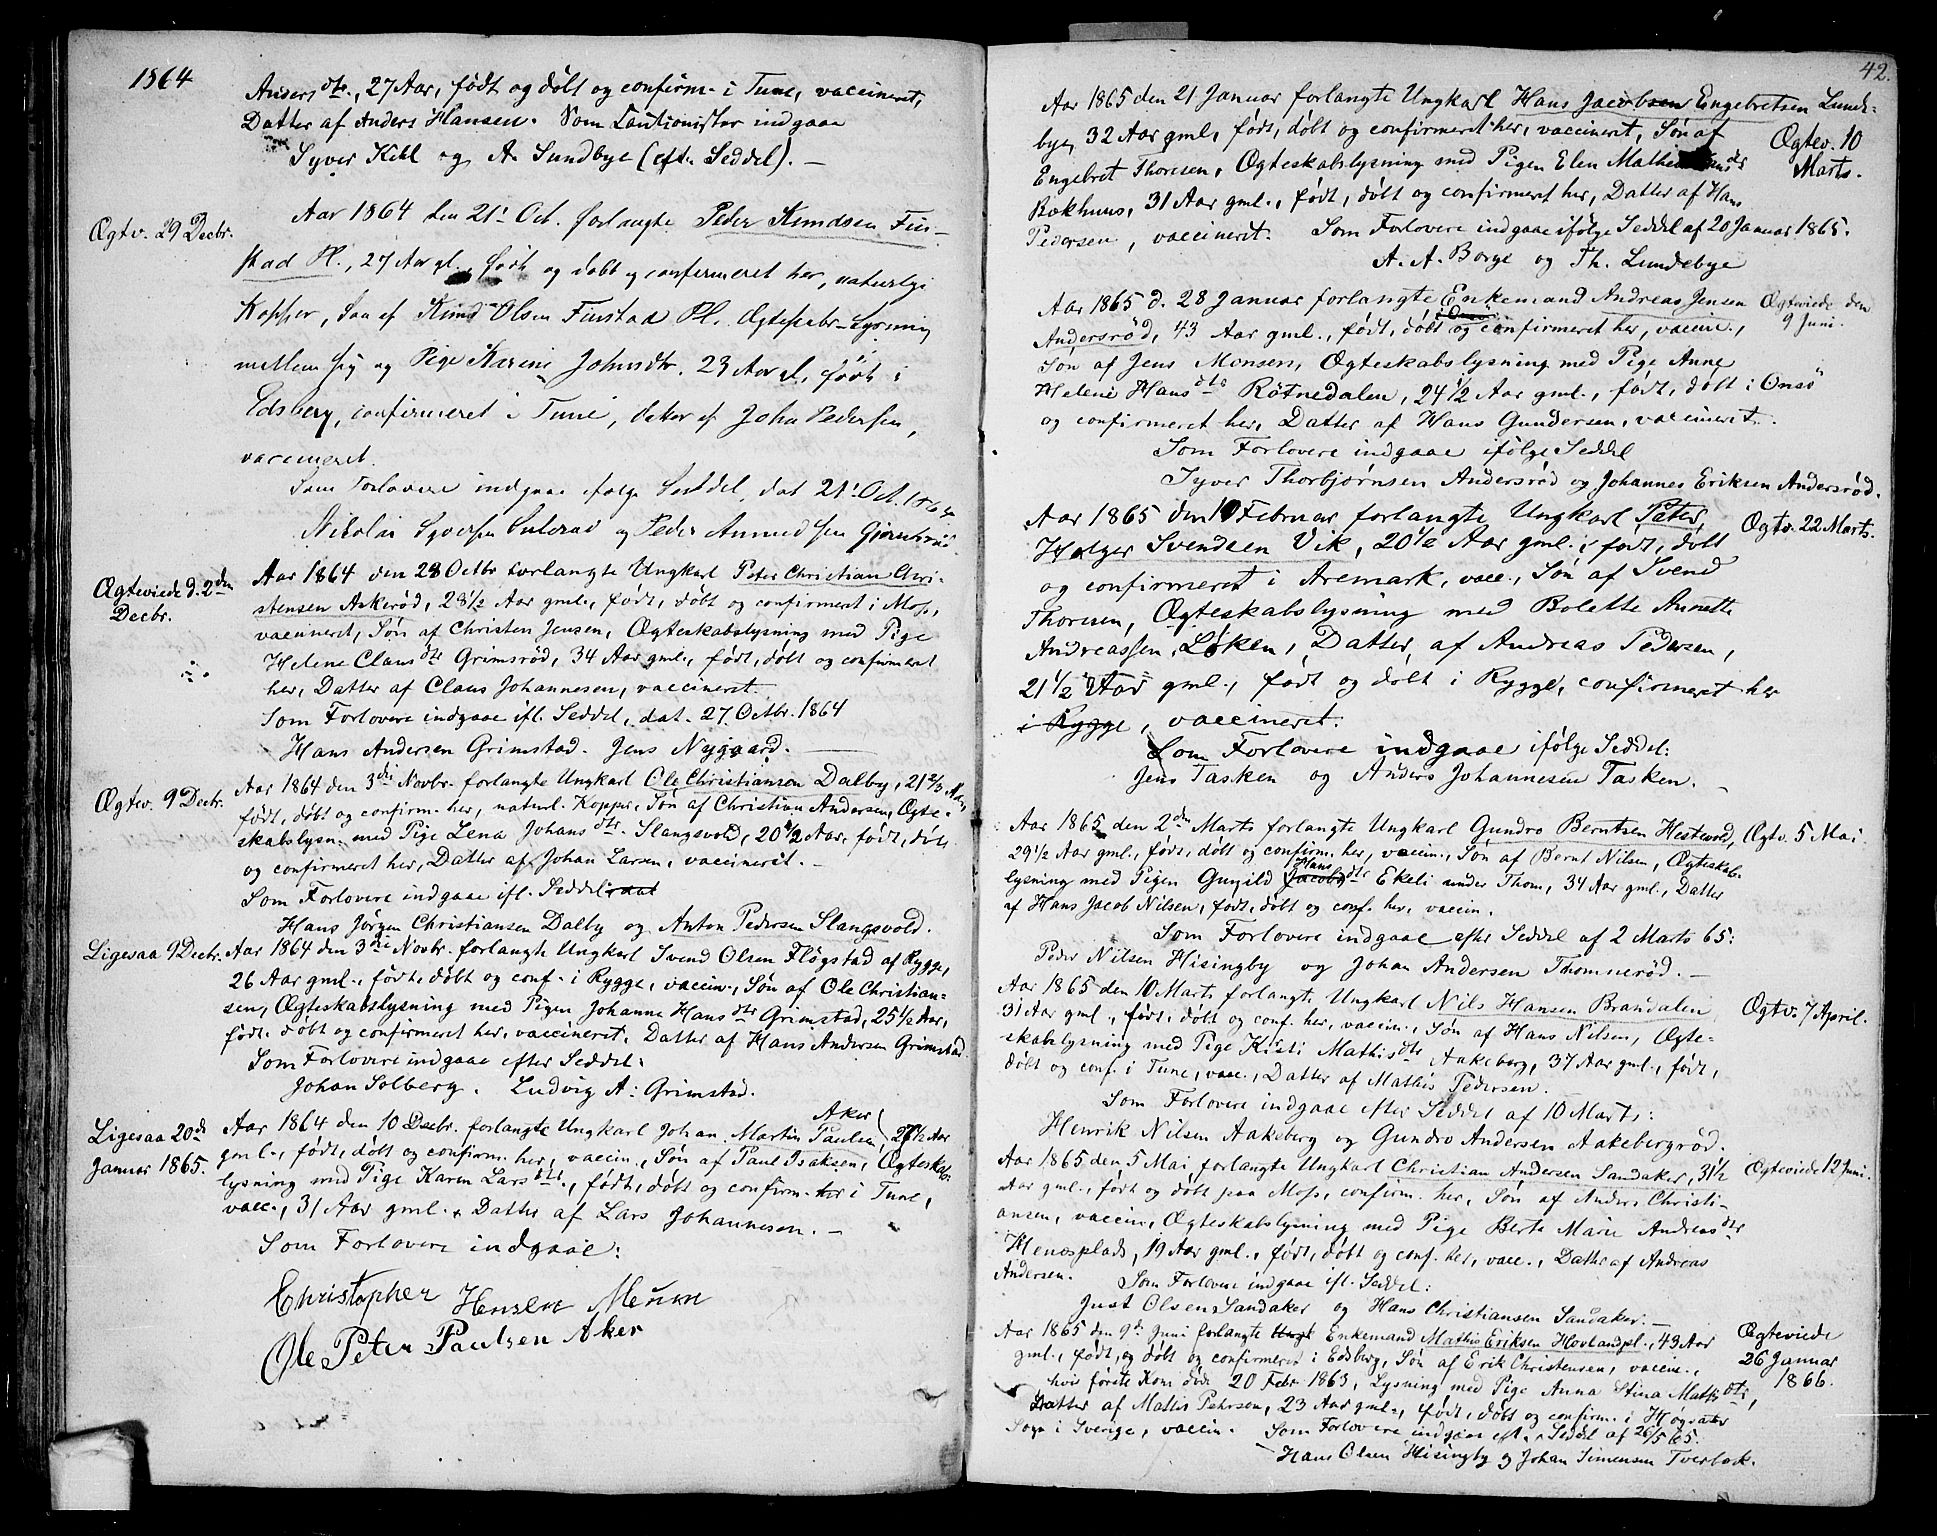 1864
Anders dtr., 27 Aar, født og døbt og confirm. i Tune, vaccineret,
Datter af Anders Hansen. Som Cautionister indgaae
Syver Kihl og A. Sundbye (eft. Seddel). —
Ægtv. 29 Decbr.
Aar 1864 den 21' Oct. forlangte Peder Knudsen Fin-
stad Pl., 27 Aar gl. født og døbt og confirmeret her, naturlige
Kopper, Søn af Knud Olsen Finstad Pl. Ægteskabs-Lysning
mellem sig og Pige Karine Johnsdtr. 23 Aar gl. født i
Edsberg, confirmeret i Tune, datter af John Pedersen,
vaccineret.
Som Forlovere indgaae følge Seddel, dat 21' Oct. 1864
Nikolai Syversen og Peder Amundsen
Ægteviede d. 2den
Decbr.
Aar 1864 den 28 Octbr forlangte Ungkarl Peter Christian Chri-
stensen Askerød, 28 1/2 Aar gml., født, døbt og confirmeret i Moss,
vaccineret, Søn af Christen Jensen, Ægteskabslysning med Pige
Helene Claus dtr Grimsrød, 34 Aar gml., født, døbt og confirmeret
her, Datter af Claus Johannesen, vaccineret.
Som Forlovere indgaae ifl. Seddel, dat. 27. Octbr. 1864
Hans Andersen Grimstad. Jens Nygaard. —
Ægtev. 9 Decbr.
Aar 1864 den 3die Novbr. forlangte Ungkarl Ole Christiansen Dalby, 21 2/3 Aar,
født, døbt og confirm. her, naturl. Kopper, Søn af Christian Andersen, Ægte-
skabslysn. med Pige Lena Johans dtr. Slangsvold, 20 1/2 Aar, født, døbt
og confirmeret her, Datter af Johan Larsen, vaccineret. —
Som Forlovere indgaae ifl. Seddel
Hans Jörgen Christiansen Dalby og Anton Pedersen Slangsvold.
Ligesaa 9 Decbr.
Aar 1864 den 3die Novbr. forlangte Ungkarl Svend Olsen Fløgstad af Rygge,
26 Aar gml., født, døbt og conf. i Rygge, vaccin., Søn af Ole Christian-
sen, Ægteskabslysning med Pigen Johanne Hans dtr Grimstad, 25 1/2 Aar,
født, døbt og confirmeret her, vaccineret, Datter af Hans Andersen Grimstad.
Som Forlovere indgaae efter Seddel:
Johan Solberg. Ludvig A: Grimstad.
Ligesaa 20de
Januar 1865.
Aar 1864 den 10 Decbr. forlangte Ungkarl Johan Martin Paulsen Aker, 27 1/2 Aar
gml., født, døbt og confirm. her, vaccin., Søn af Paul Isaksen, Ægteskabs-
lysning med Pige Karen Lars dtr., født, døbt og confirm. her i Tune,
vacc., 31 Aar gml. Datter af Lars Johannesen. —
Som Forlovere indgaae:
Christopher Hensen Meum
Ole Peter Paulsen Aker
42.
Aar 1865 den 21 Januar forlangte Ungkarl Hans Jacobsen Engebretsen Lunde-
bye, 32 Aar gml., født, døbt og confirmeret her, vaccineret, Søn af
Engebret Thoresen, Ægteskabslysning med Pigen Elen Mathea Hans dtr
Bakhuus, 31 Aar gml., født, døbt og confirmeret her, Datter af Hans
Pedersen, vaccineret. Som Forlovere indgaae ifölge Seddel af 20 Januar 1865.
A. A. Borge og Th. Lundebye
Ægtev. 10
Marts.
Aar 1865 d. 28 Januar forlangte Enkemand Andreas Jensen
Andersrød, 43 Aar gml., født, døbt og confirmeret her, vaccin.,
Søn af Jens Monsen, Ægteskabslysning med Pige Anne
Helene Hans dtr Rötnedalen, 24 1/2 Aar gml., født, døbt i Onsö
og confirmeret her, Datter af Hans Gundersen, vaccineret.
Som Forlovere indgaae ifölge Seddel
Syver Thorbjørnsen Andersrød og Johannes Eriksen Andersrød.
Ægteviede den
9 Juni.
Aar 1865 den 10 Februar forlangte Ungkarl Peter
Holger Svendsen Vik, 20 1/2 Aar gml., født, døbt
og confirmeret i Aremark, vacc., Søn af Svend
Thoresen, Ægteskabslysning med Bolette Annette
Andreassen Løken, Datter af Andreas Pedersen,
21 1/2 Aar gml., født og døbt i Rygge, confirmeret her
i Rygge, vaccineret.
Som Forlovere indgaae ifølge Seddel:
Jens Tasken og Anders Johannesen Tasken. —
Ægtv. 22 Marts.
Aar 1865 den 2den Marts forlangte Ungkarl Gundro Berntsen Hestevold,
29 1/2 Aar gml., født, døbt og confirm. her, vaccin., Søn af Bernt Nilsen, Ægteskabs-
lysning med Pigen Gunild Jacobs Hans dtr Ekeli under Thom, 34 Aar gml., Datter
af Hans Jacob Nilsen, født, døbt og conf. her, vaccin.
Som Forlovere indgaae efter Seddel af 2 Marts 65:
Peder Nilsen Hisingby og Johan Andersen Thomnerød. —
Ægtv. 5 Mai
Aar 1865 den 10 Marts forlangte Ungkarl Nils Hansen Brandalen
31 Aar gml., født, døbt og conf. her, vaccin., Søn af Hans Nilsen, Ægte-
skabslysning med Pige Kisti Mathis dtr Aakeberg, 37 Aar gml., født,
døbt og conf. i Tune, vacc., Datter af Mathis Pedersen.
Som Forlovere indgaae efter Seddel af 10 Marts:
Henrik Nilsen Aakeberg og Gundro Andersen Aakebergrød.
Ægtv. 7 April.
Aar 1865 den 5 Mai forlangte Ungkarl Christian Andersen Sandaker, 31 1/2
Aar gml., født og døbt paa Moss, confirm. her, Søn af Anders Christi-
ansen, vaccin., Ægteskabslysning med Pige Berte Marie Andreas dtr
Henesplads, 19 Aar gml., født, døbt og conf. her, vacc., Datter af Andreas
Andersen. Som Forlovere indgaae ifl. Seddel:
Just Olsen Sandaker og Hans Christiansen Sandaker. —
Ægteviede 12 Juni.
Aar 1865 den 9de Juni forlangte Ungk Enkemand Mathis Eriksen Hovlandpl., 43 Aar
gml., født, og døbt og confirmeret i Edsberg, Søn af Erik Christensen, vaccin.,
hvis første Kone døde 20 Febr. 1863, Lysning med Pige Anna Stina Mattis dtr,
Datter af Mattis Pehrsen, 23 Aar gml., født, døbt og confirm. i Høgsäter
Sogn i Sverige, vaccin. Som Forlovere indgaae eft. Seddel af 26/5 65.
Hans Olsen Hisingby og Johan Simensen Tverbæk.
Ægteviede
26 Januar
1866.